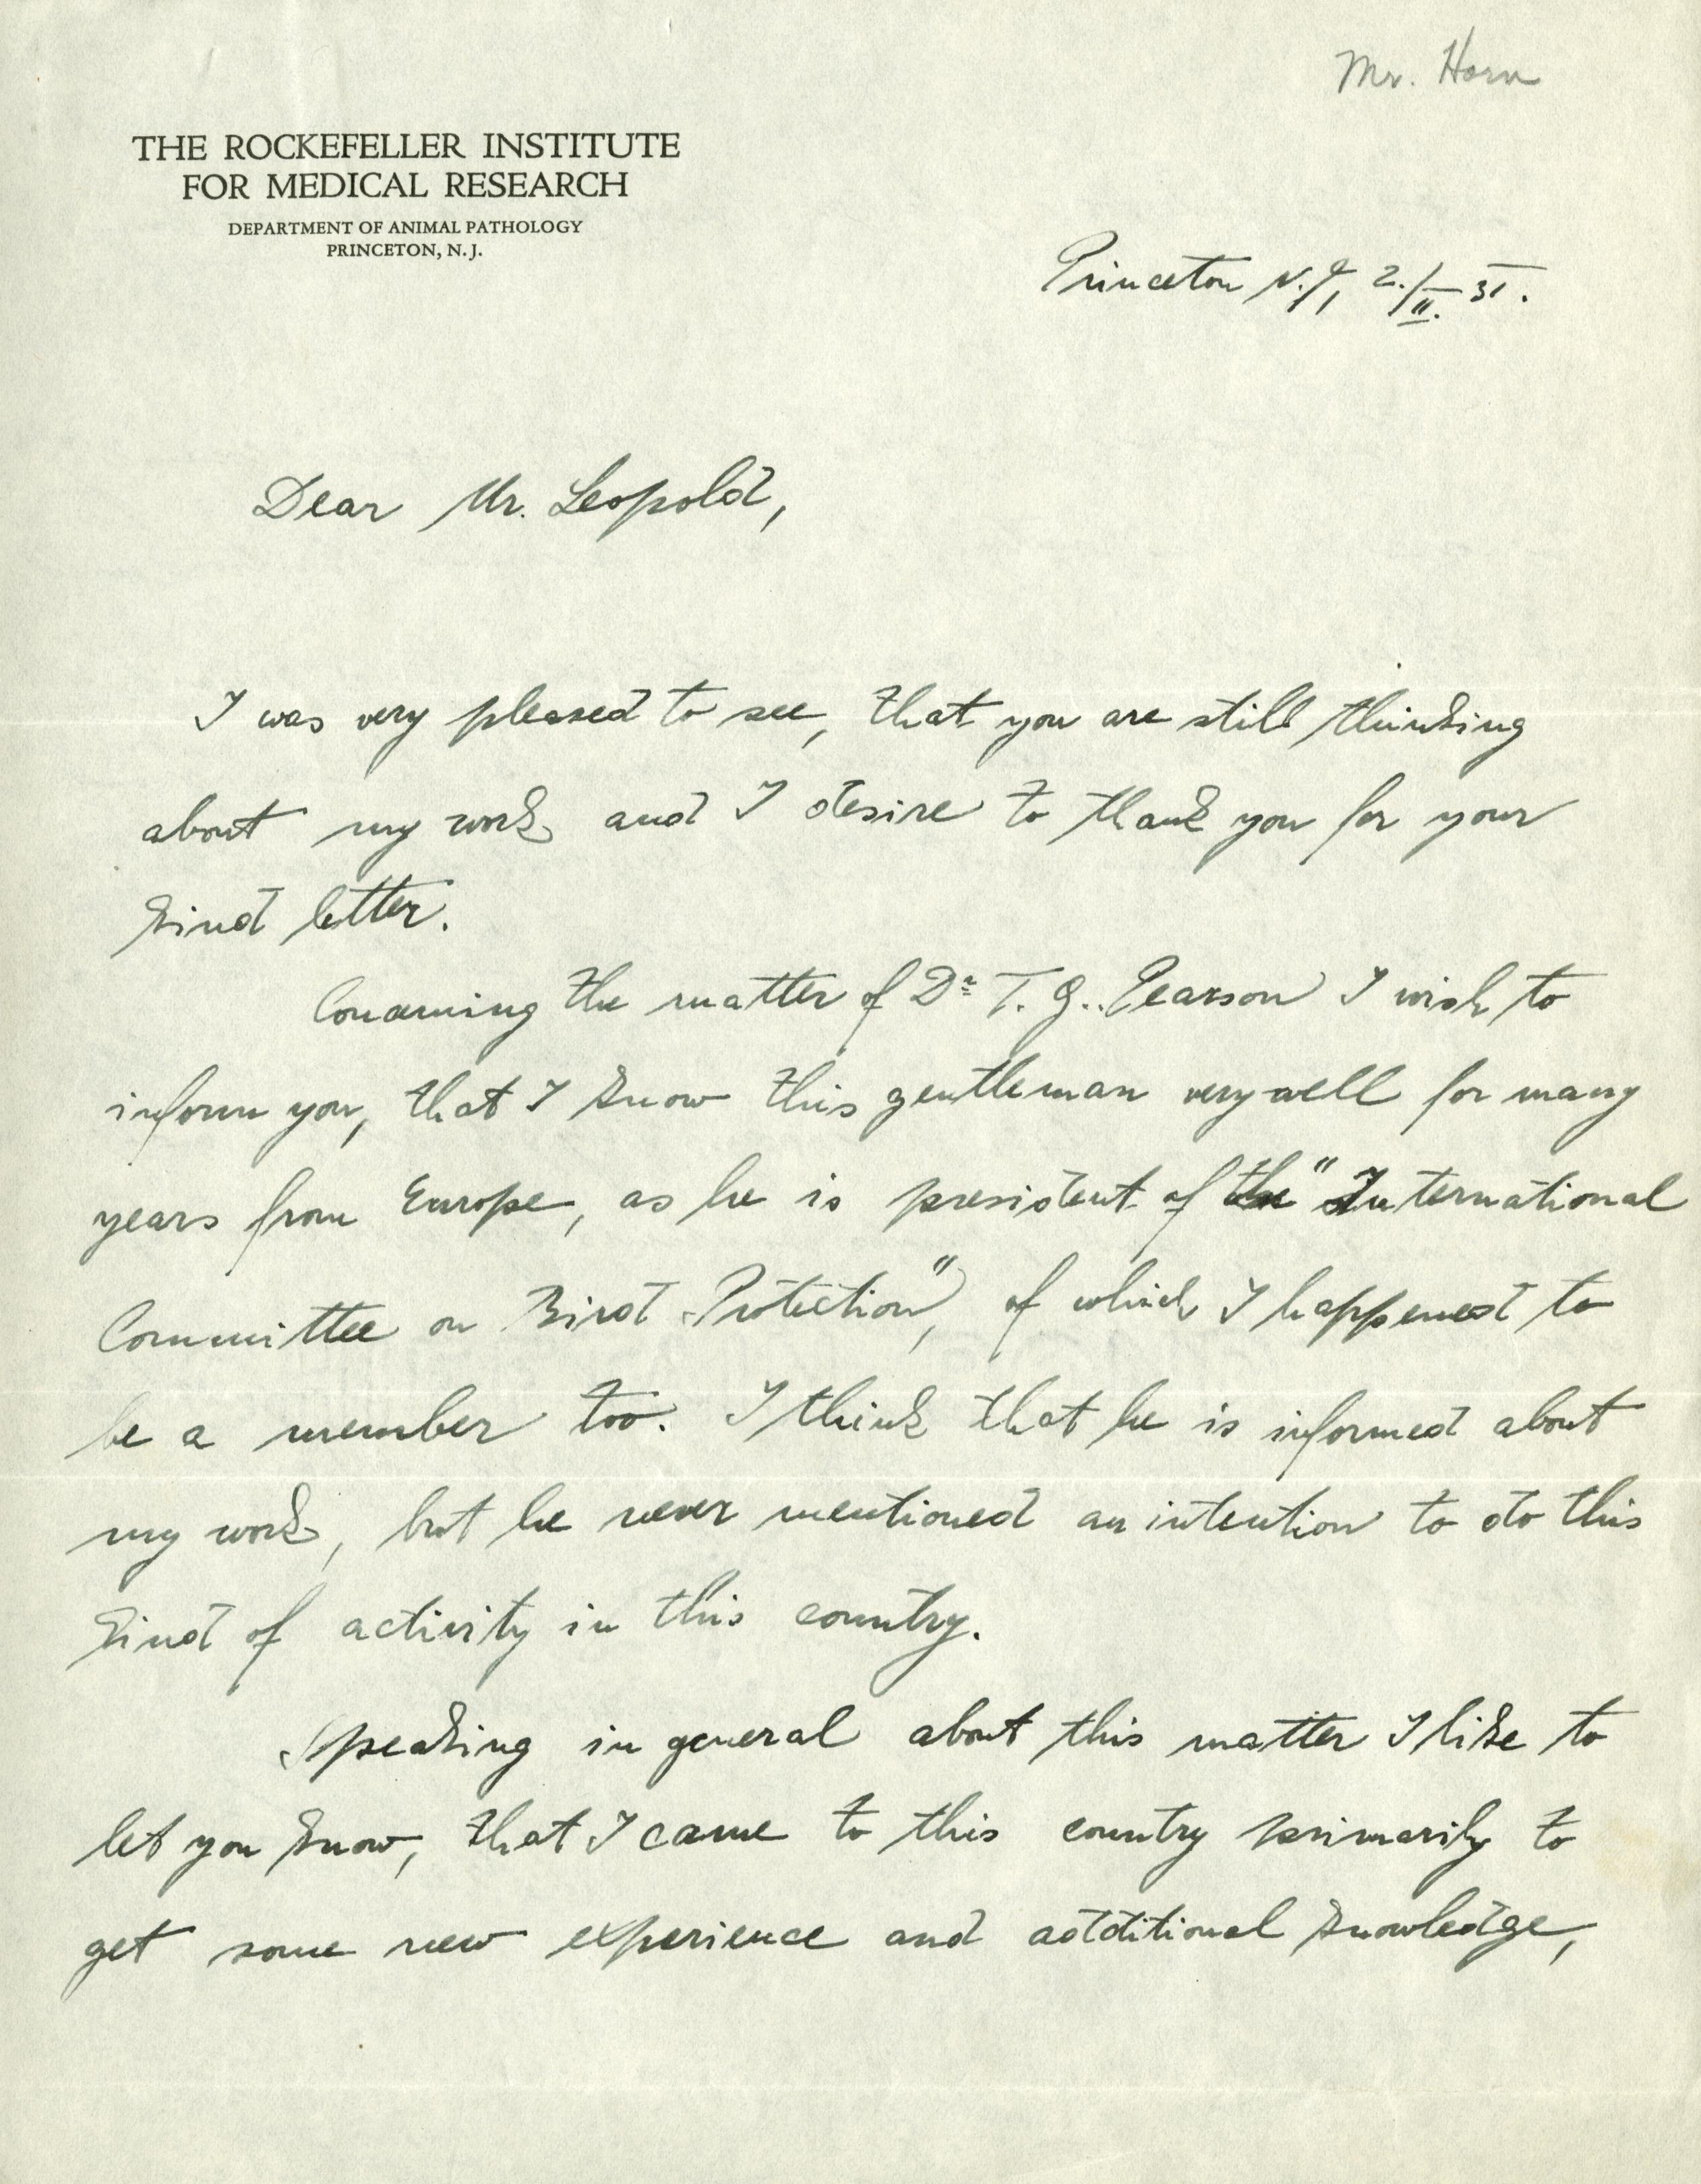 Mr. Horn
THE ROCKEFELLER INSTITUTE
FOR MEDICAL RESEARCH
DEPARTMENT OF ANIMAL PATHOLOGY
PRINCETON, N. J.
Princeton N.J., 2./II. 31.
Dear Mr. Leopold,
I was very pleased to see, that you are still thinking
about my work and I desire to thank you for your
kind letter.
Concerning the matter of Dr T. G. Pearson I wish to
inform you, that I know this gentleman very well for many
years from Europe, as he is president of the "International
Committee on Bird Protection", of which I happened to
be a member too. I think that he is informed about
my work, but he never mentioned an intention to do this
kind of activity in this country.
Speaking in general about this matter I like to
let you know, that I came to this country primarily to
get some new experience and additional knowledge,